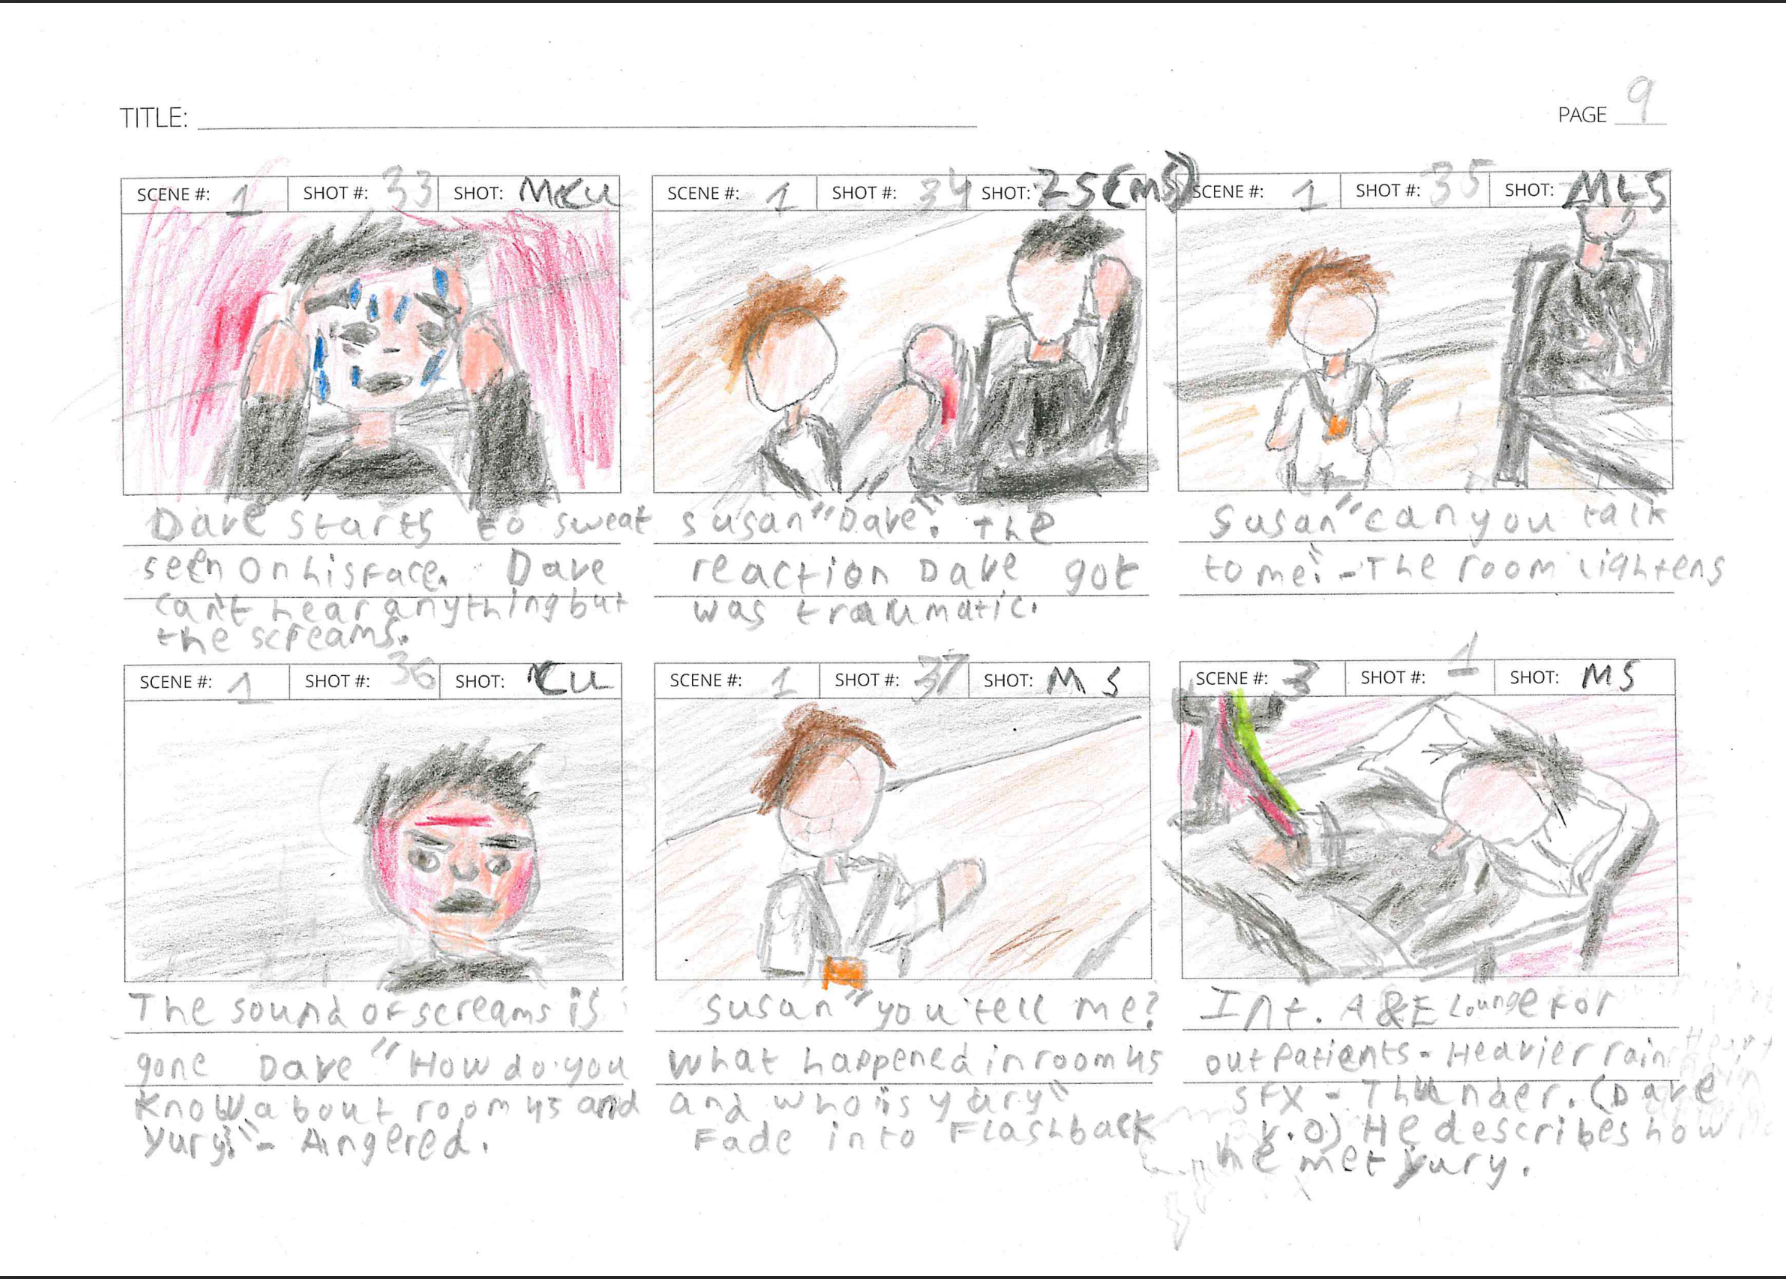 TITLE:
PAGE 9
SCENE #: 1 SHOT #: 33 SHOT: MCU
Dave starts to sweat
seen on his face. Dave
can't hear anything but
the screams.
SCENE #: 1 SHOT #: 34 SHOT: 2S (MS)
susan "Dave". The
reaction Dave got
was traumatic.
SCENE #: 1 SHOT #: 35 SHOT: MLS
Susan "can you talk
to me". - The room lightens
SCENE #: 1 SHOT #: 36 SHOT: CU
The sound of screams is
gone Dave "How do you
know about room 45 and
Yury?" - Angered.
SCENE #: 1 SHOT #: 37 SHOT: MS
Susan "you tell me?
What happened in room 45
and who is yury"
Fade into Flashback
SCENE #: 3 SHOT #: 1 SHOT: MS
Int. A&E Lounge for
outpatients - Heavier rain
SFX - Thunder. (Dave
V.O) He describes how
he met yury.